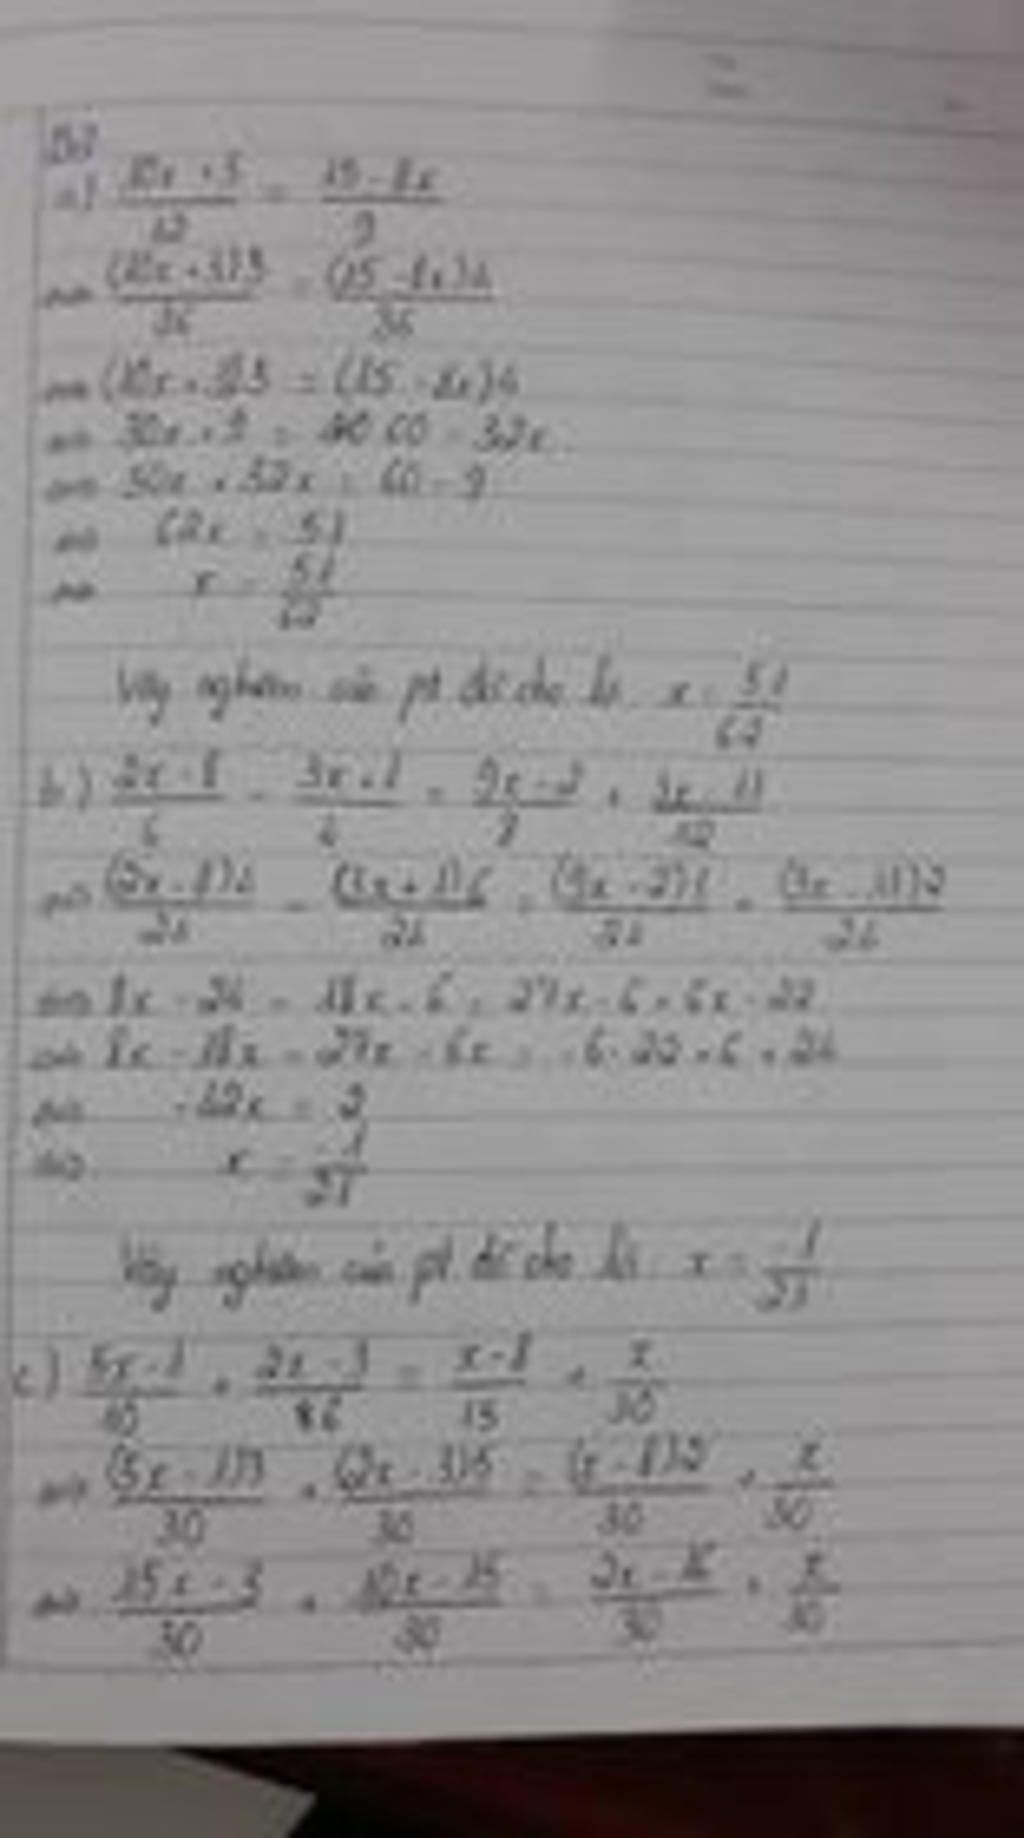 a) \frac{10x + 3}{12} = \frac{15 - 8x}{9}
<=> \frac{(10x + 3)3}{36} = \frac{(15 - 8x)4}{36}
<=> (10x + 3)3 = (15 - 8x)4
<=> 30x + 9 = 60 - 32x
<=> 30x + 32x = 60 - 9
<=> 62x = 51
<=> x = \frac{51}{62}
Vậy nghiệm của pt đã cho là x = \frac{51}{62}
b) \frac{2x - 8}{6} - \frac{3x + 1}{4} = \frac{9x - 2}{8} + \frac{3x - 11}{12}
<=> \frac{(2x - 8)4}{24} - \frac{(3x + 1)6}{24} = \frac{(9x - 2)3}{24} + \frac{(3x - 11)2}{24}
<=> 8x - 24 - 18x - 6 = 27x - 6 + 6x - 22
<=> 8x - 18x - 27x - 6x = -6 - 22 + 6 + 24
<=> -42x = 2
<=> x = \frac{-1}{21}
Vậy nghiệm của pt đã cho là x = \frac{-1}{21}
c) \frac{5x - 1}{10} + \frac{2x - 3}{6} = \frac{x - 8}{15} + \frac{x}{30}
<=> \frac{(5x - 1)3}{30} + \frac{(2x - 3)5}{30} = \frac{(x - 8)2}{30} + \frac{x}{30}
<=> \frac{15x - 3}{30} + \frac{10x - 15}{30} = \frac{2x - 16}{30} + \frac{x}{30}